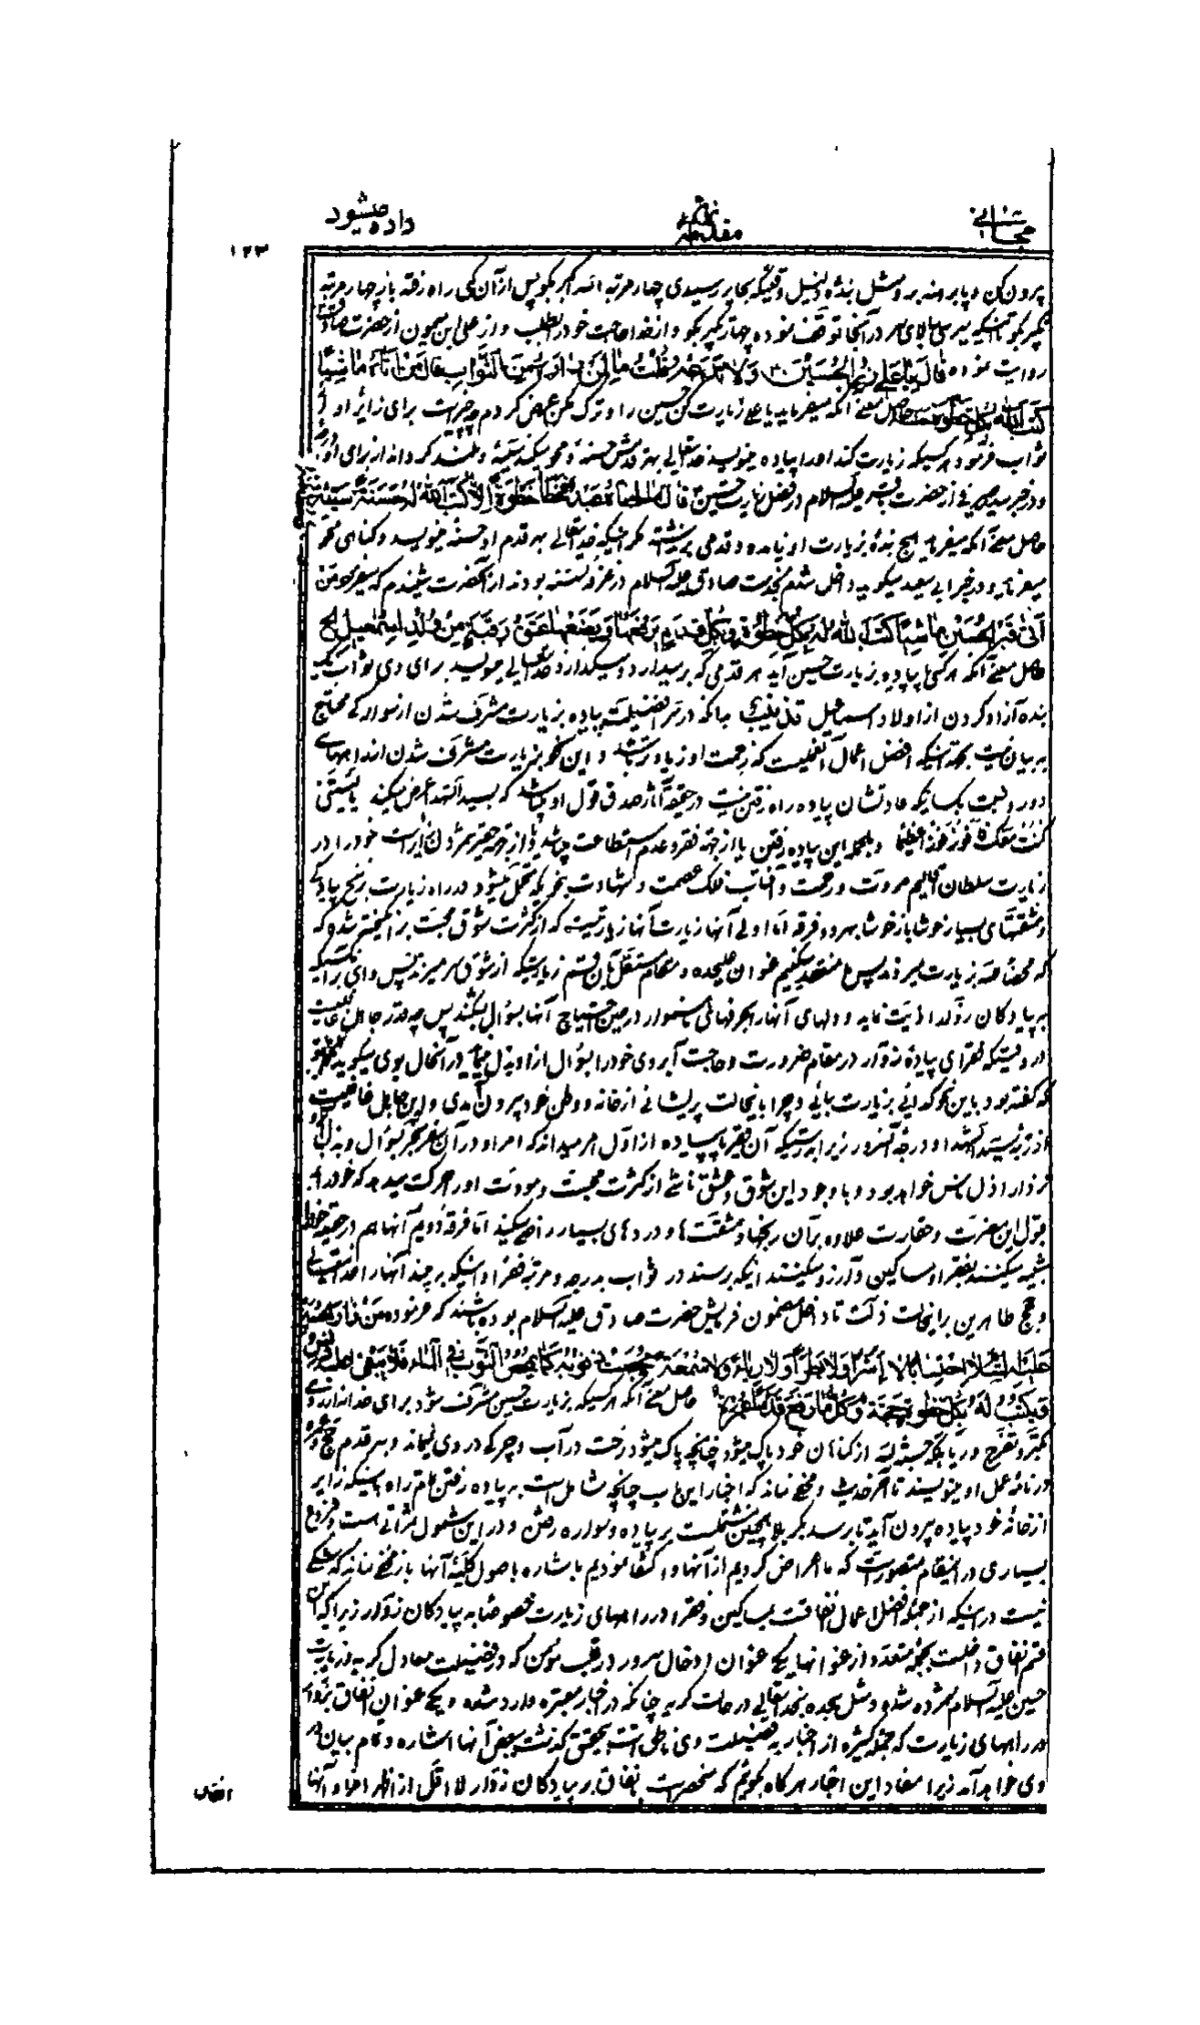 مجانی مقدمه داده میشود
۱۲۳
پرون کن و پا برهنه برو مثل بنده ذلیل و قتیکه بحایر رسیدی چهار مرتبه الله اکبر بکو پس از آن کمی راه رفته باز چهار مرتبه
تکبیر بکو تا اینکه برسی ببالای سر در آنجا توقف نموده چهار تکبیر بکو و از خدا حاجت خود را بطلب و از علی ابن میمون از حضرت صادق
روایت نموده قال یا علی زر الحسین ولا تدعه قلت ما لمن زاره من الثواب قال من اتاه ماشیا
کتب الله بکل خطوة حسنة حاصل معنی آنکه میفرماید یا علی زیارت کن حسین را و ترک مکن عرض کردم چه چیز است برای زائر او از
ثواب فرمود هر کسیکه زیارت کند او را پیاده مینویسد خدایتعالی بهر قدمش حسنة و محو میکند سیئة و بلند کرداند از برای او
حاصل معنی آنکه میفرماید هیچ بندۀ بزیارت او نیامده و قدمی برنداشته مکر اینکه خدایتعالی بهر قدم او حسنه مینویسد و کناهی محو
میفرماید و در خبر ابی سعید میکوید داخل شدم بخدمت صادق علیه السلام در غرفه نشسته بودند از آنحضرت شنیدم که میفرمود من
اتی قبر الحسین ماشیا کتب الله له بکل خطوة وبکل قدم یرفعها ویضعها عتق رقبة من ولد اسمعیل الخ
حاصل معنی آنکه هر کس با پیاده بزیارت حسین آید هر قدمی که بر میدارد و میکذارد خدایتعالی مینویسد برای وی ثواب یک
بنده آزاد کردن از اولاد اسماعیل بدانکه در سر افضلیت پیاده بزیارت مشرف شدن از سواره کی محتاج
به بیان نیست بجهة اینکه افضل اعمال آنعملیست که زحمت او زیاد باشد و این نحو بزیارت مشرف شدن از راههای
دور و نسبت بکسانیکه عادتشان پیاده راه رفتن نیست در حقیقة آثار صدق قول او میباشد که بسید الشهدا عرض میکند یا لیتنی
کنت معک فافوز فوزا عظیما و بالجمله این پیاده رفتن یا از جهة فقر و عدم استطاعت میباشد و یا از جهة حقیر شمردن است خود را در
زیارت سلطان اقالیم مروت و رحمت و آفتاب فلک عصمت و شهادت بنحویکه متحمل میشود در راه زیارت برنج پیادکی
و مشقتهای بسیار خوشا باز خوشا بهر دو فرقه اما اولی آنها زیارت آنها زیارتیست که از کثرت شوق محبت بر انکیخته شده که
که محضا لله بزیارت میروند پس منعقد میکنیم عنوان علیحده و مقام مستقل باین قسم زیارتیکه از شوق سر میزند پس وای برآنکسیکه
به پیادکان زوار اذیت نماید و دلهای آنها را بحرفهای ناهموار در حین احتیاج آنها بسؤال بشکند پس چه قدر جاهل و غافلست
در وقتیکه فقرای پیاده زوار در مقام ضرورت و حاجت آبروی خود را بسؤال از او بذل مینمایند در آنحال بوی میکوید
که گفته بود باین نحو کدائی بزیارت بیائی و چرا با اینحالت پریشانی از خانه و وطن خود پیرون آمدی و این جاهل غافلست
از رتبه سید الشهداء و درجه آنسرور زیرا بدرستیکه آن فقیر پاپیاده از اول امر میداند که امر او در آن سفر منجر بسؤال و بذل آبرو
نزد اراذل ناس خواهد بود و با وجود این شوق و عشق ناشی از کثرت محبت و مودت او را حرکت میدهد که خود را به
قبول این معرت و حقارت علاوه بر آن رنجها و مشقت ها و دردهای بسیار راضی میکند اما فرقه دویم آنها هم در حقیقه خود را
شبیه میکنند بفقراء و مساکین و آرزو میکنند اینکه برسند در ثواب بدرجه و مرتبۀ فقراء و اینکه برچیند آنها را خدایتعالی
و حجج طاهرین باینحالت ذلت تا داخل مضمون فرمایش حضرت صادق علیه السلام بوده باشند که فرموده من زار الحسین
علیه السلام احتسابا لا اشرا ولا بطرا ولا ریاء ولا سمعة محصت ذنوبه کما یمحص الثوب فی الماء فلا یبقی علیه دنس
فیکتب له بکل خطوة حجة وکل ما رفع قدما عمرة حاصل معنی آنکه هر کسیکه بزیارت حسین مشرف شود برای خدا نه از روی
تکبر و تفرج و ریا بلکه حسبة لله از کناهان خود پاک میشود چنانچه پاک میشود رخت در آب و چرکی در وی نمیماند و بهر قدم حج و عمره
در نامۀ عمل او مینویسند تا آخر حدیث و مخفی نماند که اخبار این باب چنانچه شامل است به پیاده رفتن تمام راه باینکه زایر
از خانۀ خود پیاده پیرون آید تا برسد بکربلا همچنین مشتملست بر پیاده و سواره رفتن و در این شمول ثمراتی است و فروع
بسیاری در اینمقام متصور است که ما اعراض کردیم از آنها و اکتفا نمودیم باشاره باصول کلیۀ آنها باز مخفی نماند که شکی
نیست در اینکه از جملۀ افضل اعمال انفاقست بمساکین و فقراء در راههای زیارت خصوصا به پیادکان زوار زیرا که این
قسم انفاق داخلست بجملۀ متعدده از عنوانها یکی عنوان ادخال سرور در قلب مؤمن که در فضیلت معادل کریه و زیارت
حسین علیه السلام شمرده شده و مثل سجده بخدایتعالی در حالت کریه چنانکه در اخبار معتبره وارد شده و یکی عنوان انفاق بزوار
در راههای زیارت که جملۀ کثیره از اخبار بفضیلت وی ناطق است بتحقیق گذشت ببعض آنها اشاره و تمام بیان در
وی خواهد آمد زیرا مفاد این اخبار هر کاه بکوئیم که منحصر است بانفاق بر پیادکان زوار لا اقل از اظهر افراد آنها